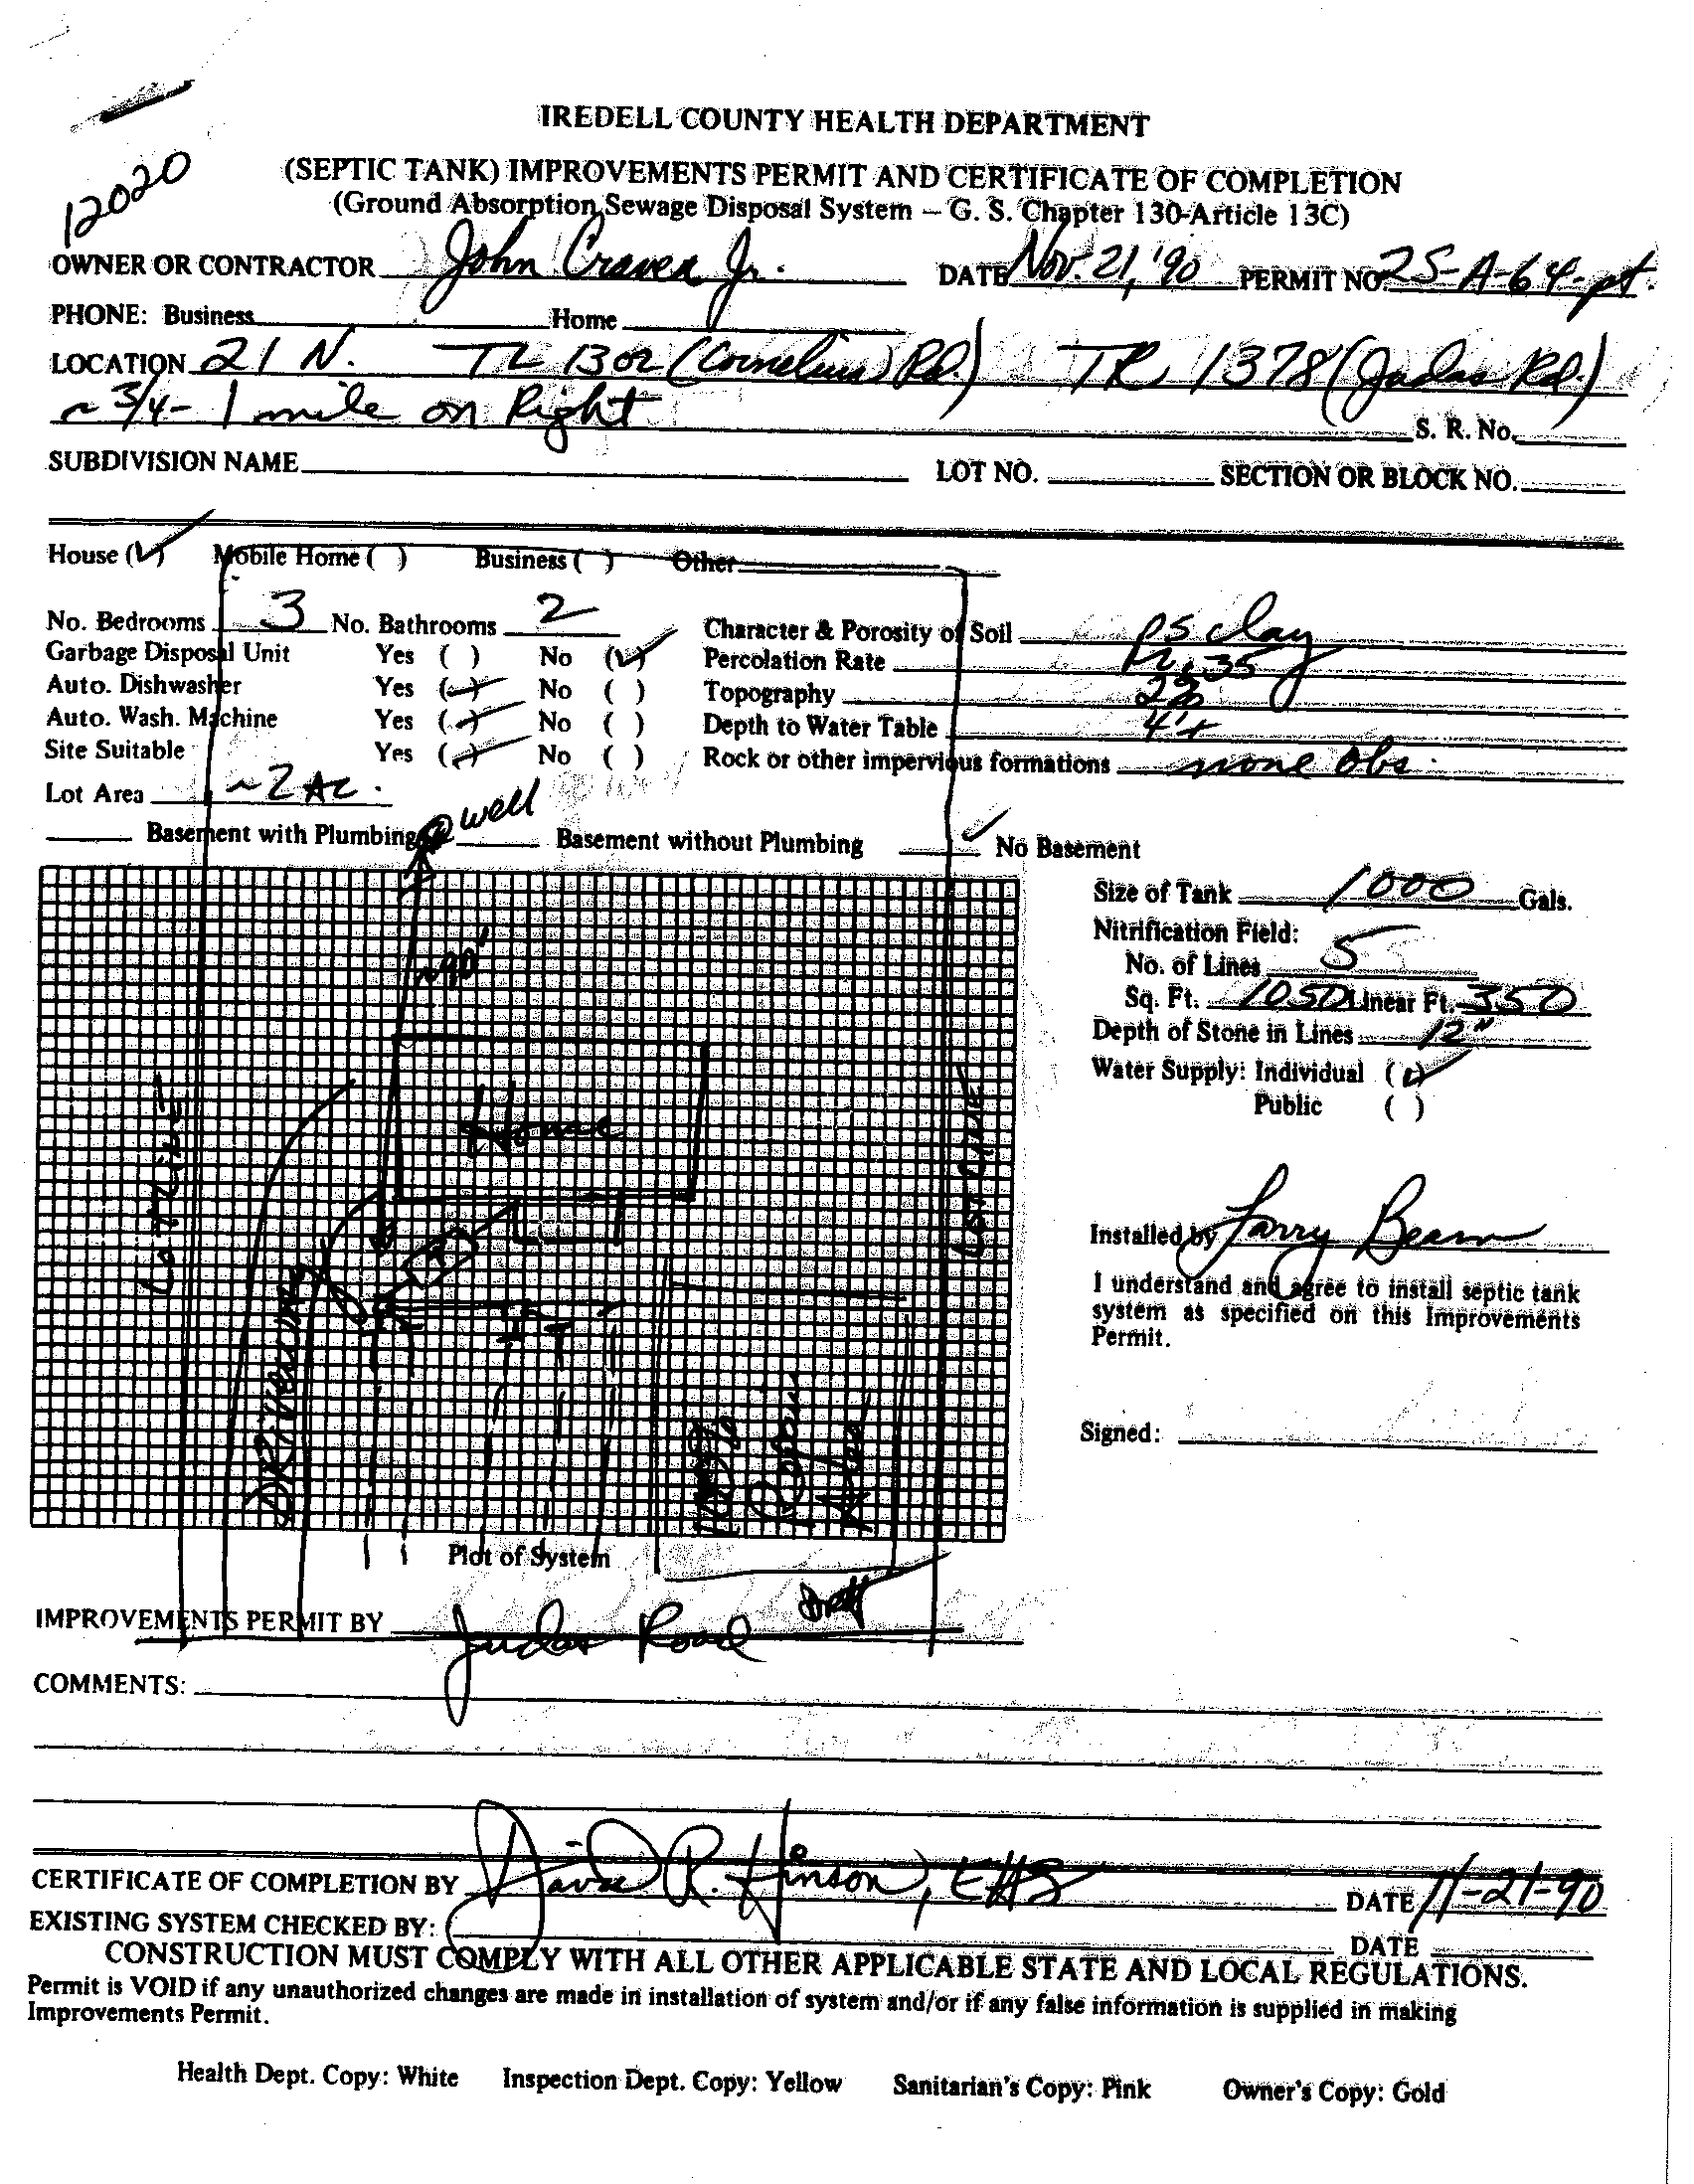 IREDELL COUNTY HEALTH DEPARTMENT
(SEPTIC TANK) IMPROVEMENTS PERMIT AND CERTIFICATE OF COMPLETION
(Ground Absorption Sewage Disposal System – G. S. Chapter 130-Article 13C)
12020
OWNER OR CONTRACTOR John Craven Jr. DATE Nov. 21, '90 PERMIT NO. 2S-A-64-pt.
PHONE: Business Home
LOCATION 21 N. TL 1302 (Cornelius Rd.) TR 1378 (Judas Rd.)
~ 3/4 - 1 mile on Right S. R. No.
SUBDIVISION NAME LOT NO. SECTION OR BLOCK NO.
House (✓) Mobile Home ( ) Business ( ) Other
No. Bedrooms 3 No. Bathrooms 2 Character & Porosity of Soil PS clay
Garbage Disposal Unit Yes ( ) No (✓) Percolation Rate .35
Auto. Dishwasher Yes (✓) No ( ) Topography
Auto. Wash. Machine Yes (✓) No ( ) Depth to Water Table 4'+
Site Suitable Yes (✓) No ( ) Rock or other impervious formations none obs.
Lot Area ~2 Ac.
well
Basement with Plumbing Basement without Plumbing ✓ No Basement
Size of Tank 1000 Gals.
Nitrification Field:
~90'
No. of Lines 5
Sq. Ft. 1050 Linear Ft. 350
Depth of Stone in Lines 12"
Water Supply: Individual (✓)
Public ( )
House
Lot Line
Lot Line
Driveway
Installed by Larry Beam
I understand and agree to install septic tank
system as specified on this Improvements
Permit.
Repair
Area
Signed:
Plot of System
IMPROVEMENTS PERMIT BY
Judas Road
COMMENTS:
CERTIFICATE OF COMPLETION BY David R. Hinson, EHS DATE 11-21-90
EXISTING SYSTEM CHECKED BY: DATE
CONSTRUCTION MUST COMPLY WITH ALL OTHER APPLICABLE STATE AND LOCAL REGULATIONS.
Permit is VOID if any unauthorized changes are made in installation of system and/or if any false information is supplied in making
Improvements Permit.
Health Dept. Copy: White Inspection Dept. Copy: Yellow Sanitarian's Copy: Pink Owner's Copy: Gold